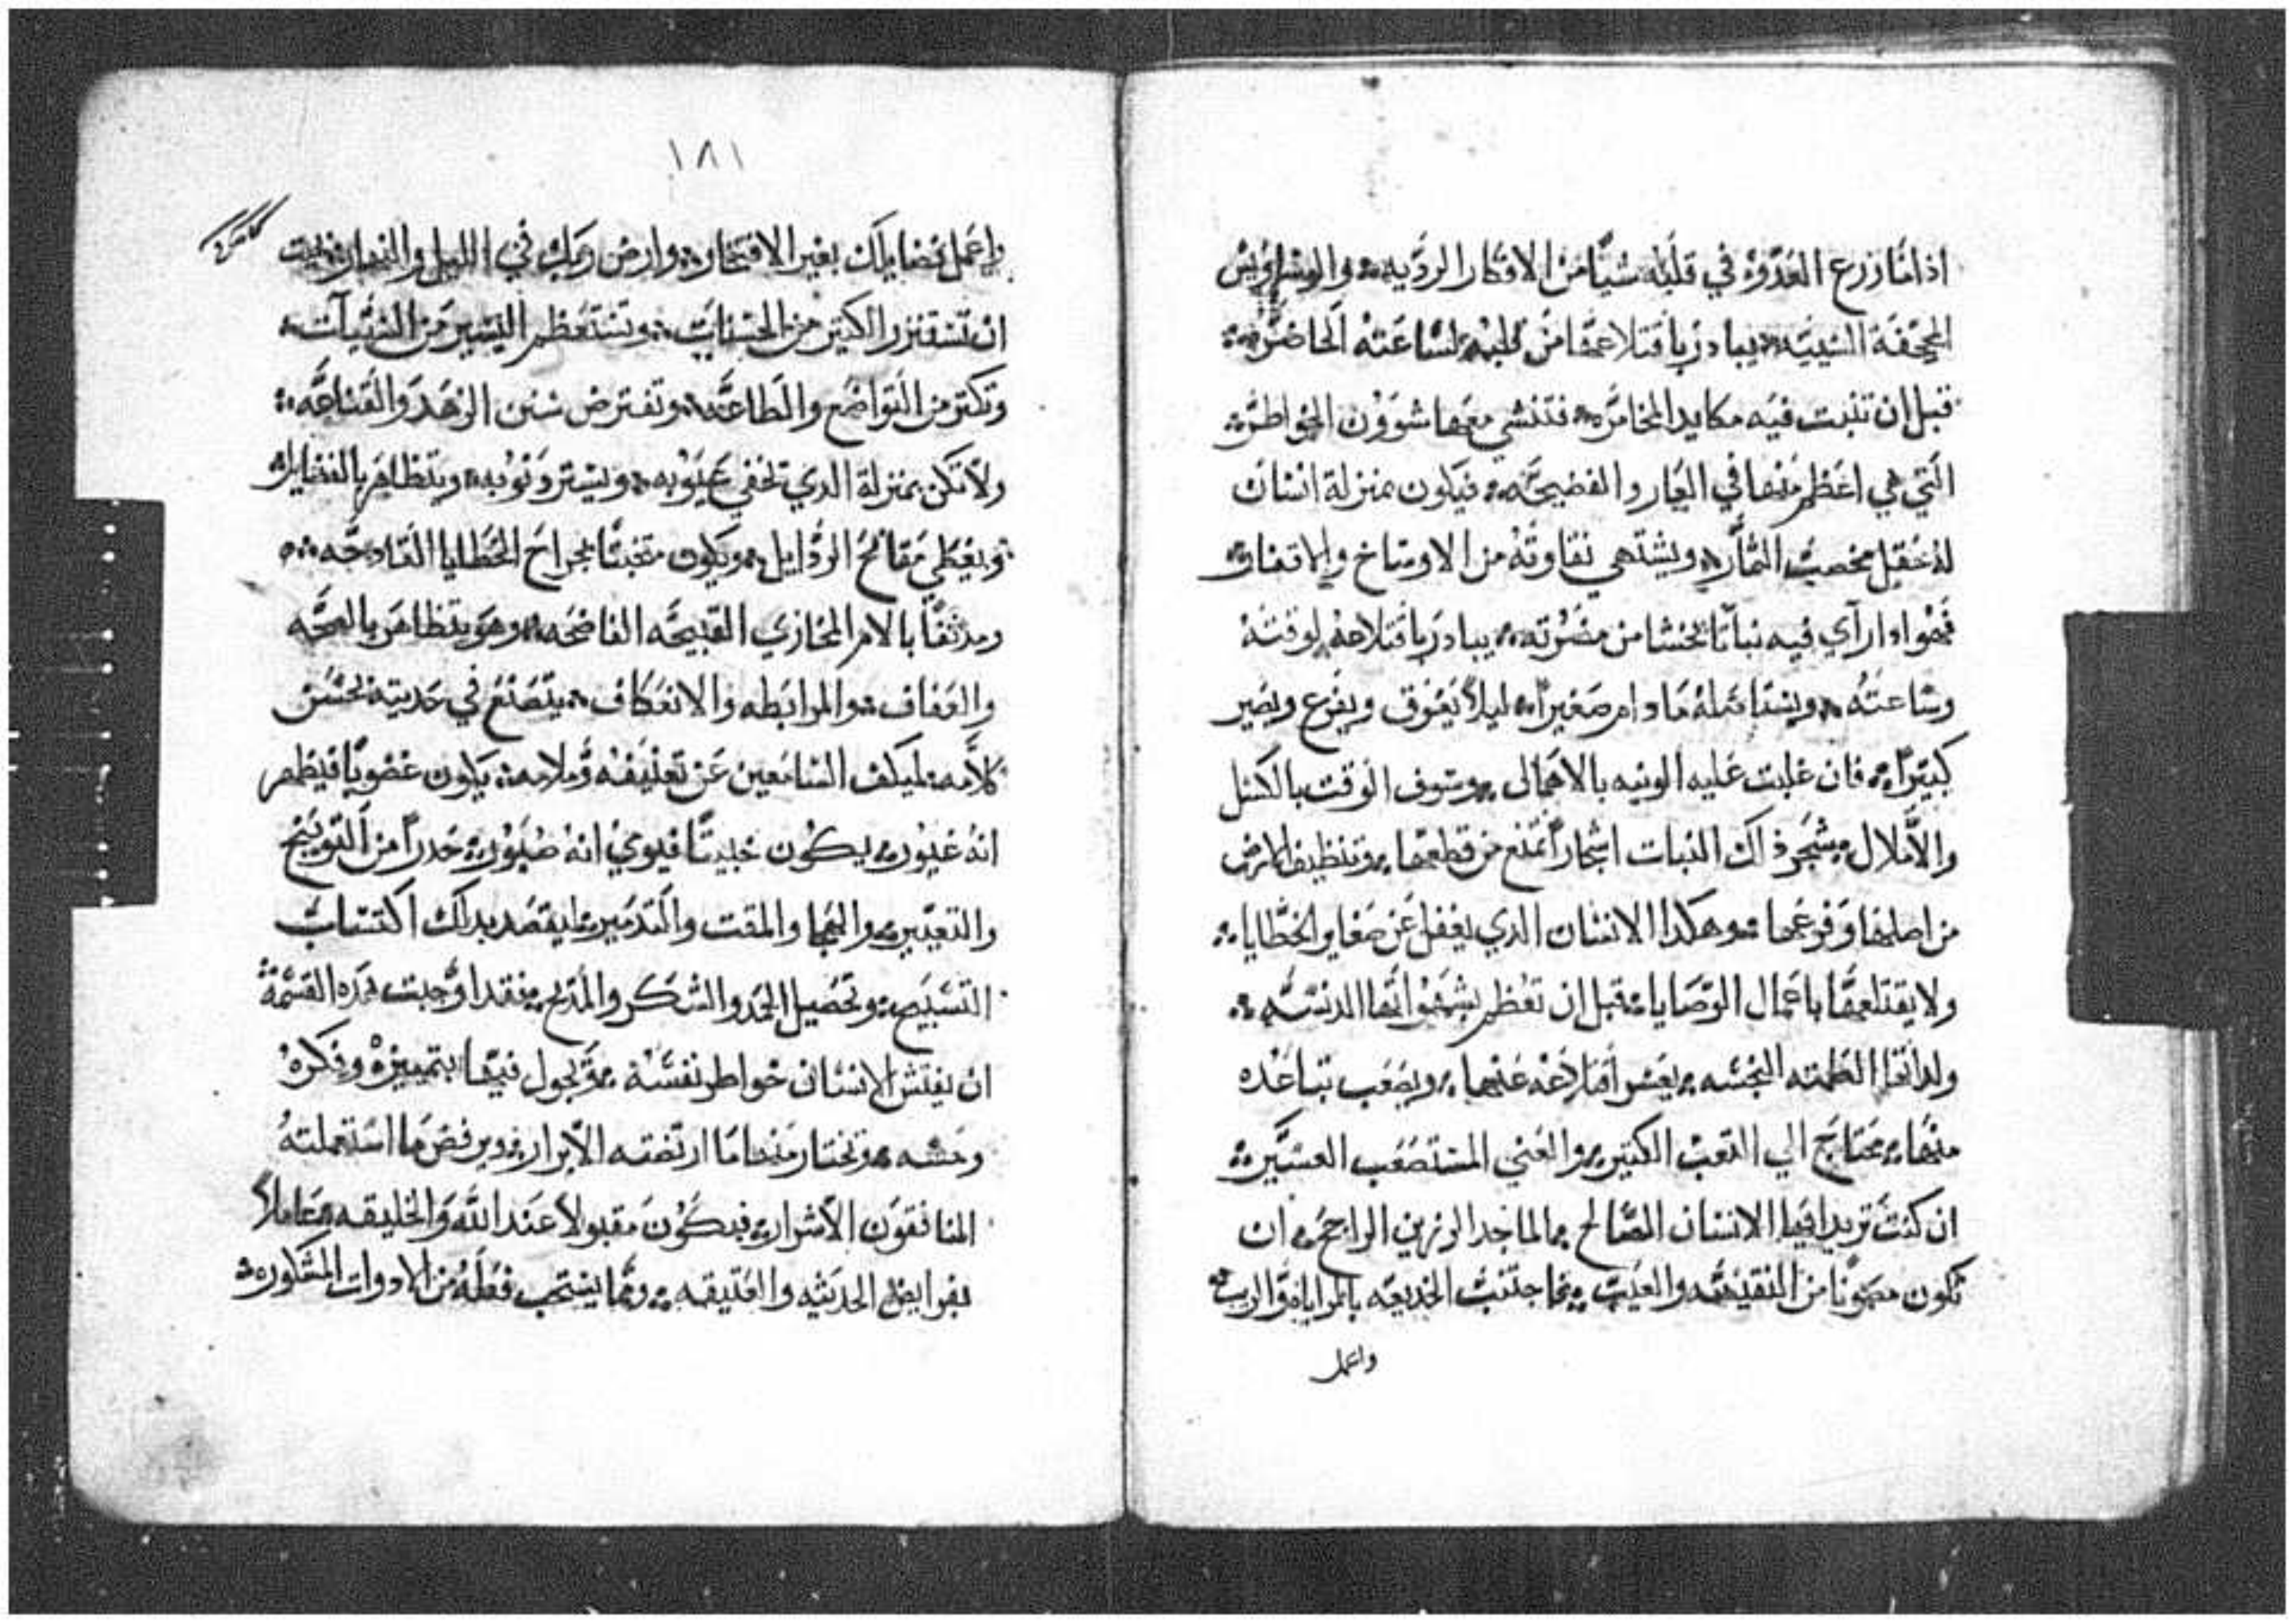 اذا ما زرع العدوّ في قلبه شيًا من الافكار الرديه والوساويس
المجحفة السييه يبادر باقتلاعها من قلبه لساعته الحاضره
قبل ان تنبت فيه مكايد المخامره فتنشي معها شوون الخواطر
التي هي اعظم منها في العار والفضيحه فيكون بمنزلة انسان
له حقل مخصب الثمار ويشتهي نقاوته من الاوساخ
فهو اذا رآي فيه نباتًا يخشا من مضرته يبادر باقتلاعه لوقته
وساعته ما دام صغيرًا ليلا يفوق ويفرع ويصير
كبيرًا فان غلبت عليه الونيه بالاهمال وسوف الوقت بالكسل
والاملال شجر ذاك النبات اشجارًا تمنع من قطعها وتنظيف الارض
من اصلها وفرعها وهكذا الانسان الدي يغفل عن صغاير الخطايا
ولا يقتلعها باعمال الوصايا قبل ان تعظم بشهواتها الدنسه
ولداتها النجسه يعسر اقتلاعه عنها ويصعب تباعده
منها محتاج الي التعب الكتير والعني المستصعب العسير
ان كنت تريد ايها الانسان الصالح الماجد الرزين الراجح ان
تكون مصونًا من النقيصه والعيب اجتنب الخديعه بالمراياه والريب
واعمل
١٨١
واعمل فضايلك بغير الافتخار وارض ربك في الليل والنهار بحيث
ان تستنزر الكتير من الحسنات وتستعظم اليسير من السيآت
وتكتر من التواضع والطاعه وتفترض سنن الزهد والقناعه
ولا تكن بمنزلة الدي تخفي عيوبه ويستر دنوبه ويتظاهر بالفضايل
ويغطي مقابح الردايل ويكون متخبثًا بجراح الخطايا القادحه
ومدنفًا بالامر المخازي القبيحه الفاضحه وهو يتظاهر بالصحه
والعفاف والمرابطه والانعكاف يتصنع في حديته بحسن
كلامه ليكف السامعين عن تعنيفه وملامه يكون غضوبًا فيظهر
انه غيور يكون خبيتًا فيوي انه صبور حدرًا من التوبيخ
والتعيير والهجا والمقت والتدمير ليقصد بداك اكتساب
التسبيح وتحصيل الحمد والشكر والمديح فقد اوجبت هده القسمة
ان يفتش الانسان خواطر نفسه ويجول فيها بتمييزه وفكره
وحسه وتختار منها ما ارتضته الابرار ويرفض ما استعملته
المنافقون الاشرار فيكون مقبولاً عند الله والخليقه عاملاً
بفرايض الحديثه والعتيقه ومما يستحب فعله من الادوات المشكوره